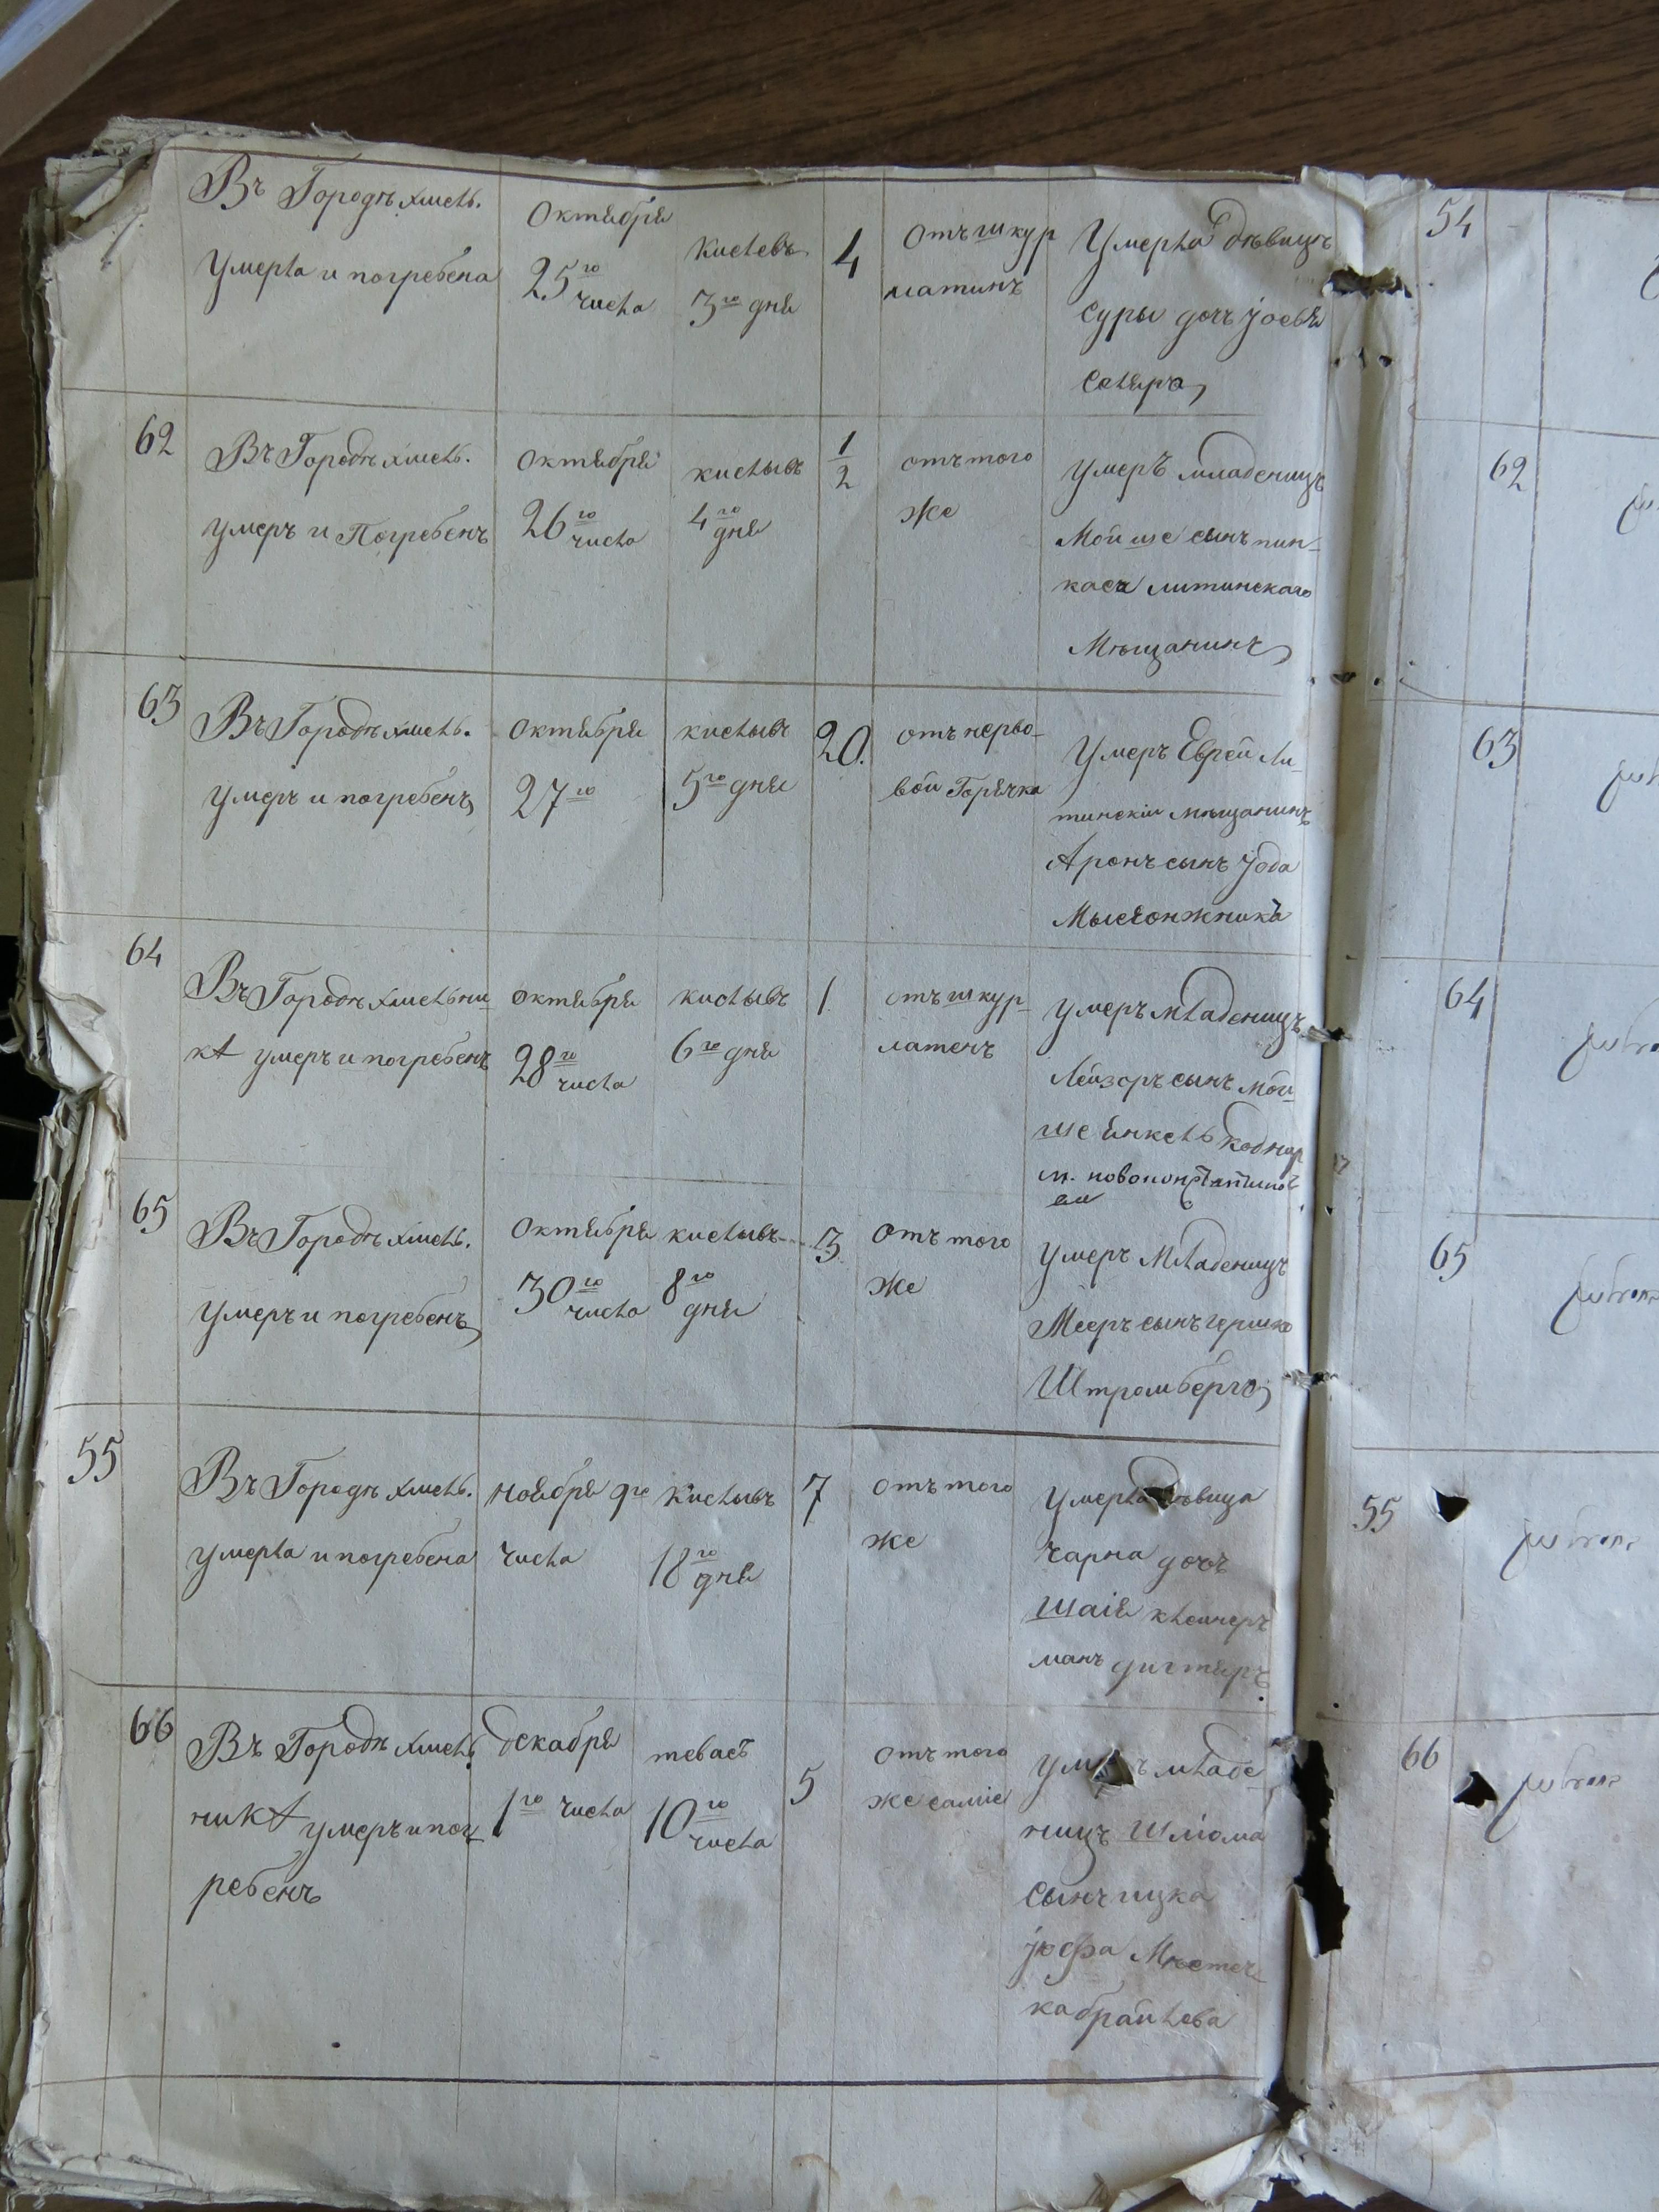 Въ Городѣ хмель.
Умерла и погребена
Октября
25го
числа
Кислевъ
3го дня
4
Отъ шкур
латинъ
Умерла дѣвица
Суры дочь
Столяра
62
Въ Городѣ хмель.
умеръ и Погребенъ
Октября
26го
числа
кислывъ
4го
дня
1/2
отъ того
же
умеръ младеницъ
Мойше сынъ пин-
каса литинскаго
Мѣщанинъ
63
Въ Городѣ хмель.
умеръ и погребенъ
Октября
27го
кислывъ
5го дня
20.
отъ нерво-
вой Горячка
Умеръ Еврей Ли-
тинскій мѣщанинъ
Аронъ сынъ Јода
64
Въ Городѣ хмельни-
кА умеръ и погребенъ
октября
28го
числа
кислывъ
6го дня
1
отъ шкур-
латенъ
умеръ младеницъ
Лейзоръ сынъ Мой-
ше Янкель
65
Въ Городѣ хмель.
умеръ и погребенъ
Октября
30го
числа
кислывъ
8го
дня
3
Отъ того
же
умеръ младеницъ
Мееръ сынъ гершко
Штромберга
55
Въ Городѣ хмель.
умерла и погребена
Ноября 9го
числа
Кислывъ
18го
дня
7
отъ того
же
Умерла дѣвица
чарна дочь
шаія
манъ
66
Въ Городѣ хмель
никА умеръ и пог
ребенъ
Декабря
1го числа
теватъ
10го
числа
5
Отъ того
же самie
младе
ницъ Шліома
сынъ ицка
јосфа Мѣстеч-
ка браилова
54
62
63
64
65
55
66